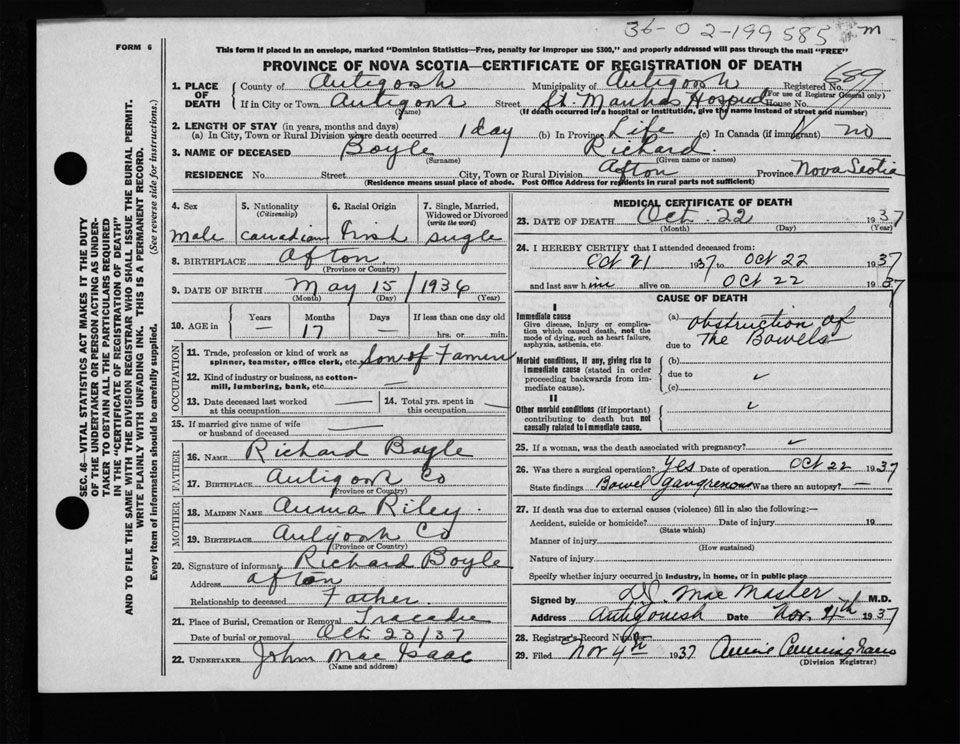 36-02-199585 m
FORM 6
This form if placed in an envelope, marked "Dominion Statistics—Free, penalty for improper use $300," and properly addressed will pass through the mail "FREE"
PROVINCE OF NOVA SCOTIA—CERTIFICATE OF REGISTRATION OF DEATH
SEC. 46—VITAL STATISTICS ACT MAKES IT THE DUTY
OF THE UNDERTAKER OR PERSON ACTING AS UNDER-
TAKER TO OBTAIN ALL THE PARTICULARS REQUIRED
IN THE "CERTIFICATE OF REGISTRATION OF DEATH"
AND TO FILE THE SAME WITH THE DIVISION REGISTRAR WHO SHALL ISSUE THE BURIAL PERMIT.
WRITE PLAINLY WITH UNFADING INK. THIS IS A PERMANENT RECORD.
Every item of information should be carefully supplied. (See reverse side for instructions.)
1. PLACE OF DEATH County of Antigosh Municipality of Antigosh Registered No. 689
(For use of Registrar General only)
If in City or Town Antigosh Street St. Marthas Hospital House No.
(Name) (If death occurred in a hospital or institution, give the name instead of street and number)
2. LENGTH OF STAY (in years, months and days)
(a) In City, Town or Rural Division where death occurred 1 day (b) In Province Life (c) In Canada (if immigrant) no
3. NAME OF DECEASED Boyle Richard
(Surname) (Given name or names)
RESIDENCE No. Street City, Town or Rural Division Afton Province Nova Scotia
(Residence means usual place of abode. Post Office Address for residents in rural parts not sufficient)
4. Sex 5. Nationality (Citizenship) 6. Racial Origin 7. Single, Married, Widowed or Divorced (write the word)
male canadian Irish single
8. BIRTHPLACE Afton
(Province or Country)
9. DATE OF BIRTH May 15/1936
(Month) (Day) (Year)
10. AGE in Years Months Days If less than one day old
— 17 — hrs. or min.
OCCUPATION
11. Trade, profession or kind of work as
spinner, teamster, office clerk, etc. Son of Farmer
12. Kind of industry or business, as cotton-
mill, lumbering, bank, etc. —
13. Date deceased last worked
at this occupation —
14. Total yrs. spent in
this occupation —
15. If married give name of wife
or husband of deceased —
FATHER
16. NAME Richard Boyle
17. BIRTHPLACE Antigosh Co
(Province or Country)
MOTHER
18. MAIDEN NAME Anna Riley
19. BIRTHPLACE Antigosh Co
(Province or Country)
20. Signature of informant Richard Boyle
Address Afton
Relationship to deceased Father
21. Place of Burial, Cremation or Removal Tracadie
Date of burial or removal Oct 23/37
22. UNDERTAKER John MacIsaac
(Name and address)
MEDICAL CERTIFICATE OF DEATH
23. DATE OF DEATH Oct 22 1937
(Month) (Day) (Year)
24. I HEREBY CERTIFY that I attended deceased from:
Oct 21 1937 to Oct 22 1937
and last saw him alive on Oct 22 1937
CAUSE OF DEATH
I
Immediate cause
Give disease, injury or complica-
tion which caused death, not the
mode of dying, such as heart failure,
asphyxia, asthenia, etc.
(a) obstruction of
The Bowels
due to
Morbid conditions, if any, giving rise to
immediate cause (stated in order
proceeding backwards from im-
mediate cause).
(b)
due to
(c)
II
Other morbid conditions (if important)
contributing to death but not
causally related to immediate cause.
25. If a woman, was the death associated with pregnancy?
26. Was there a surgical operation? Yes Date of operation Oct 22 1937
State findings Bowel gangrenous Was there an autopsy? —
27. If death was due to external causes (violence) fill in also the following:—
Accident, suicide or homicide? Date of injury 19
(State which)
Manner of injury
(How sustained)
Nature of injury
Specify whether injury occurred in industry, in home, or in public place
Signed by MacMaster M.D.
Address Antigonish Date Nov. 4th 1937
28. Registrar's Record Number
29. Filed Nov 4th 1937 Annie Cunningham
(Division Registrar)